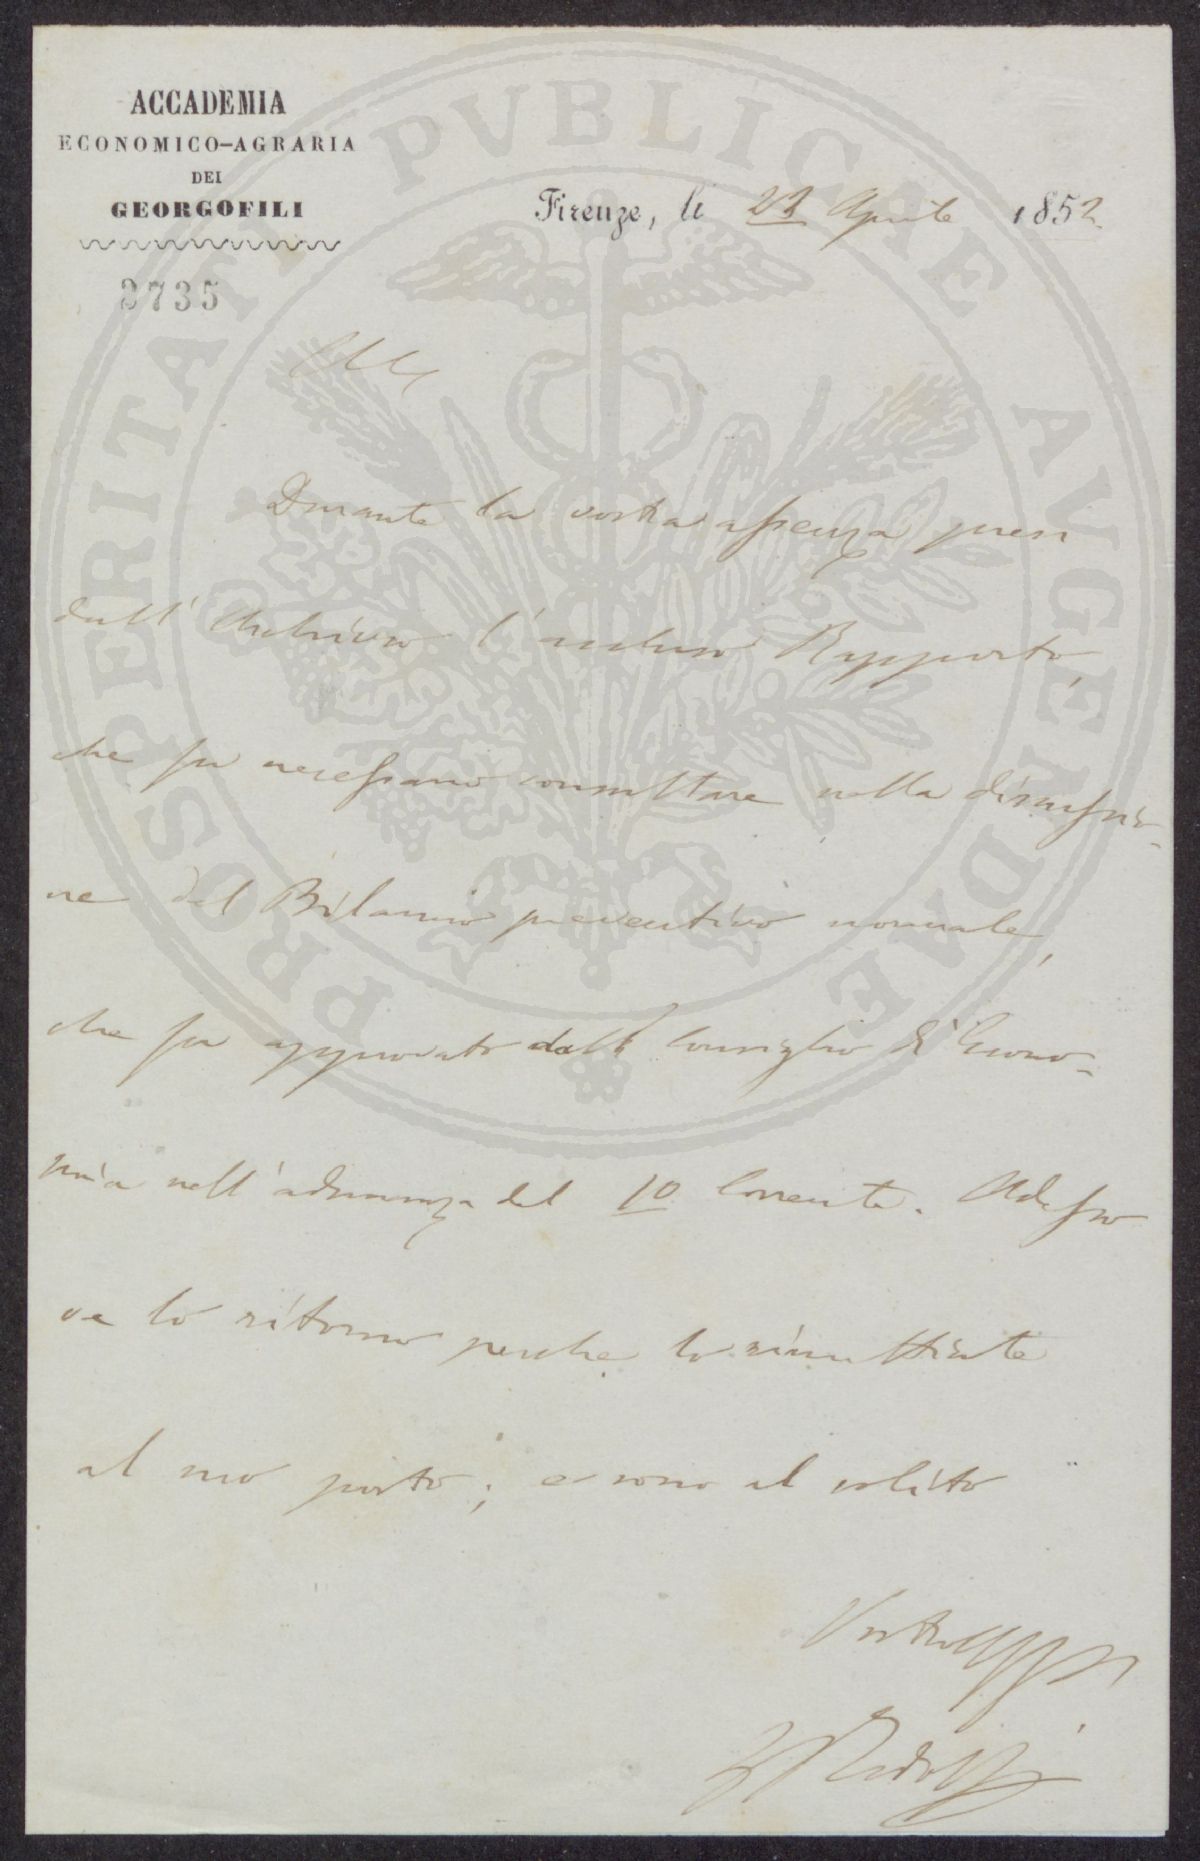 ACCADEMIA
ECONOMICO-AGRARIA
DEI
GEORGOFILI
Firenze, li 23 Aprile 1852
2735
Durante la vostra assenza presi
dall'Archivio l'accluso Rapporto,
che fu necessario consultare nella discussio-
ne del Bilancio preventivo normale,
che fu approvato dal Consiglio di Econo-
mia nell'adunanza del 10 Corrente. Adesso
ve lo ritorno perche lo rimettiate
al suo posto; e sono al solito
Ridolfi
PROSPERITATI PVBLICAE AVGENDAE